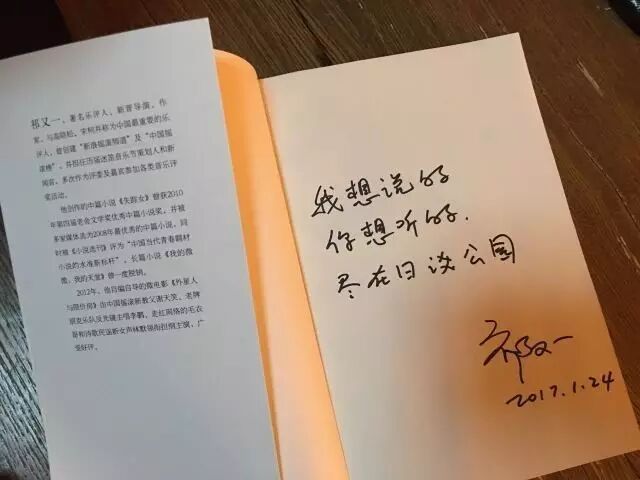 祁又一，著名乐评人，新晋导演，作
家，与高晓松、宋柯并称为中国最重要的乐
评人，曾创建“新浪摇滚频道”及“中国摇
滚榜”，并担任历届迷笛音乐节策划人和新
闻官，多次作为评委及嘉宾参加各类音乐评
奖活动。
他创作的中篇小说《失踪女》曾获2010
年第四届老舍文学奖优秀中篇小说奖，并被
多家媒体选为2008年最优秀的中篇小说，同
时被《小说选刊》评为“中国当代青春题材
小说的水准新标杆”，长篇小说《我的微
微，我的天堂》曾一度脱销。
2012年，他自编自导的微电影《外星人
与限价房》由中国摇滚新教父谢天笑、老牌
朋克乐队反光镜主唱李鹏、走红网络的毛衣
哥和诗歌民谣新女声林默领衔担纲主演，广
受好评。
我想说的
你想听的.
尽在日谈公园
祁又一
2017.1.24